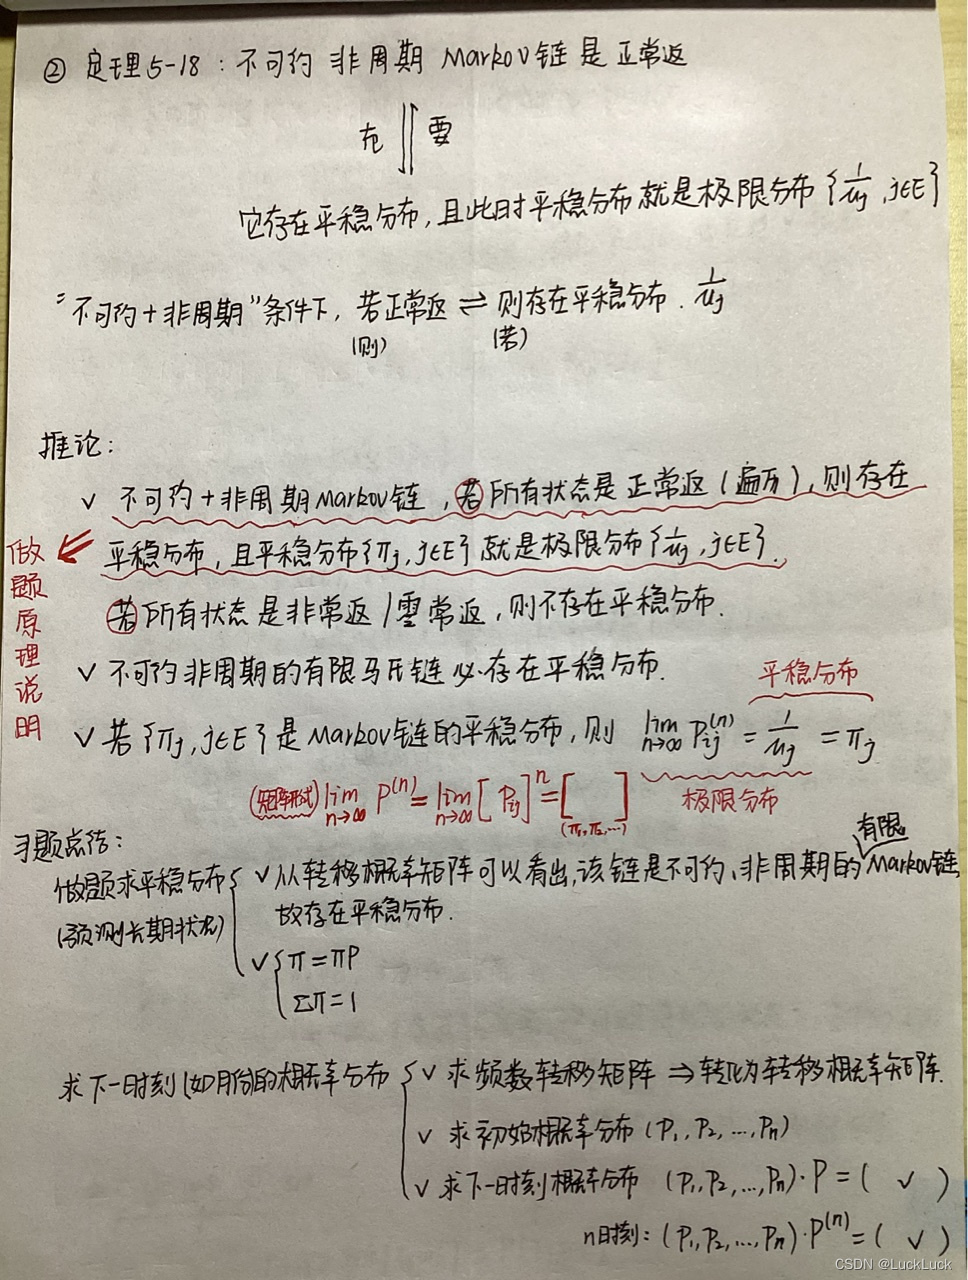 ② 定理5-18：不可约 非周期 Markov链 是 正常返
充 ⇓⇑ 要
它存在平稳分布，且此时平稳分布就是极限分布{1/μj , j∈E}
"不可约+非周期"条件下，若正常返 ⇌ 则存在平稳分布. 1/μj
(则) (若)
推论：
√ 不可约+非周期Markov链，若所有状态是正常返(遍历)，则存在
平稳分布，且平稳分布{πj, j∈E}就是极限分布{1/μj , j∈E}.
做题原理说明
若所有状态是非常返/零常返，则不存在平稳分布.
√ 不可约非周期的有限马氏链必存在平稳分布.
平稳分布
√ 若{πj, j∈E}是Markov链的平稳分布，则 lim n→∞ Pij^(n) = 1/μj = πj
极限分布
(矩阵形式) lim n→∞ P^(n) = lim n→∞ [Pij]^n = [ ]
(π1,π2,…)
习题总结：
有限
做题求平稳分布 { √ 从转移概率矩阵可以看出,该链是不可约、非周期的Markov链,
(预测长期状态) 故存在平稳分布.
√ { π=πP
Σπ=1
求下一时刻(如月份)的概率分布 { √ 求频数转移矩阵 ⇒ 转化为转移概率矩阵.
√ 求初始概率分布 (P1, P2, …, Pn)
√ 求下一时刻概率分布 (P1, P2, …, Pn)·P = ( √ )
n时刻：(P1, P2, …, Pn)·P^(n) = ( √ )
CSDN @LuckLuck